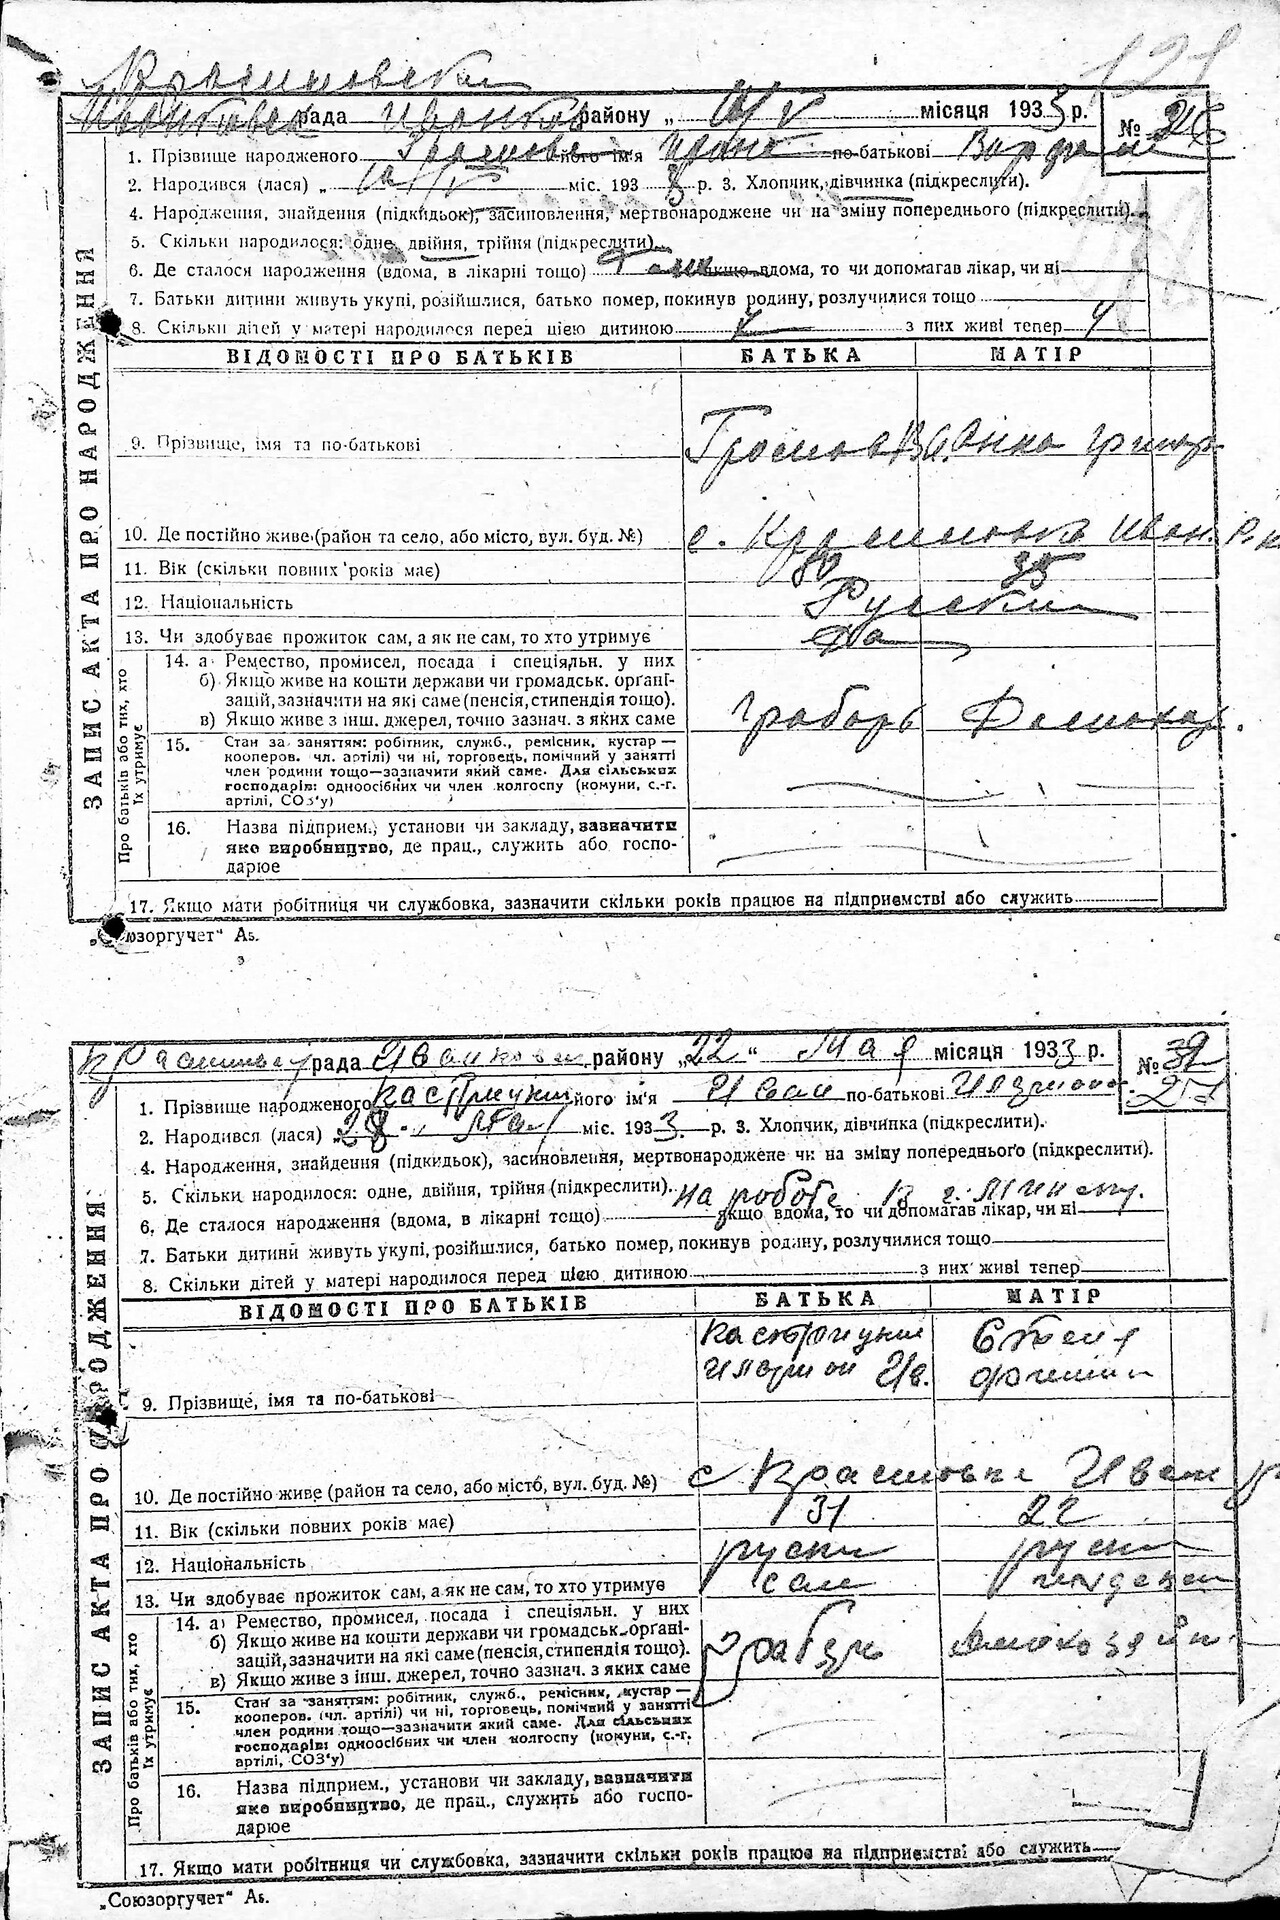 121
Красиловский
рада Иванков району „ 10/V місяця 1933 р.
№ 26
1. Прізвище народженого Громова його ім'я по-батькові
2. Народився (лася) „ 10/V міс. 1933 р. 3. Хлопчик, дівчинка (підкреслити).
4. Народження, знайдення (підкидьок), засиновлення, мертвонароджене чи на зміну попереднього (підкреслити).
5. Скільки народилося: одне, двійня, трійня (підкреслити).
6. Де сталося народження (вдома, в лікарні тощо) якщо вдома, то чи допомагав лікар, чи ні
7. Батьки дитини живуть укупі, розійшлися, батько помер, покинув родину, розлучилися тощо
8. Скільки дітей у матері народилося перед цією дитиною 4 з них живі тепер 4
ЗАПИС АКТА ПРО НАРОДЖЕННЯ
ВІДОМОСТІ ПРО БАТЬКІВ БАТЬКА МАТІР
9. Прізвище, імя та по-батькові Громов В. Анна Григор.
10. Де постійно живе (район та село, або місто, вул. буд. №) с. Красиловка Иван. р-на
11. Вік (скільки повних років має) 35
12. Національність Руский
13. Чи здобуває прожиток сам, а як не сам, то хто утримує Да
Про батьків або тих, хто їх утримує
14. а) Ремество, промисел, посада і спеціяльн. у них
б) Якщо живе на кошти держави чи громадськ. органі-
зацій, зазначити на які саме (пенсія, стипендія тощо).
в) Якщо живе з інш. джерел, точно зазнач. з яких саме
грабарь Домохоз.
15. Стан за заняттям: робітник, служб., ремісник, кустар —
кооперов. (чл. артілі) чи ні, торговець, помічний у занятті
член родини тощо—зазначити який саме. Для сільських
господарів: одноосібних чи член колгоспу (комуни, с.-г.
артілі, СОЗ'у)
16. Назва підприєм., установи чи закладу, зазначити
яке виробництво, де прац., служить або госпо-
дарює
17. Якщо мати робітниця чи службовка, зазначити скільки років працює на підприємстві або служить
„Союзоргучет" А5.
рада Иванковск району „22" Мая місяця 1933 р.
№ 32
27
1. Прізвище народженого Кастрицкий його ім'я Иван по-батькові Иларионов.
2. Народився (лася) „ Мая міс. 1933. р. 3. Хлопчик, дівчинка (підкреслити).
4. Народження, знайдення (підкидьок), засиновлення, мертвонароджене чи на зміну попереднього (підкреслити).
5. Скільки народилося: одне, двійня, трійня (підкреслити).
на роботе в г. Минску.
6. Де сталося народження (вдома, в лікарні тощо) якщо вдома, то чи допомагав лікар, чи ні
7. Батьки дитини живуть укупі, розійшлися, батько помер, покинув родину, розлучилися тощо
8. Скільки дітей у матері народилося перед цією дитиною з них живі тепер
ЗАПИС АКТА ПРО НАРОДЖЕННЯ
ВІДОМОСТІ ПРО БАТЬКІВ БАТЬКА МАТІР
Кастрицкий
Иларион Ив.
9. Прізвище, імя та по-батькові
10. Де постійно живе (район та село, або місто, вул. буд. №) с Красиловка Иван р
11. Вік (скільки повних років має) 31 22
12. Національність руски руски
13. Чи здобуває прожиток сам, а як не сам, то хто утримує сам иждевен
Про батьків або тих, хто їх утримує
14. а) Ремество, промисел, посада і спеціяльн. у них
б) Якщо живе на кошти держави чи громадськ. органі-
зацій, зазначити на які саме (пенсія, стипендія тощо).
в) Якщо живе з інш. джерел, точно зазнач. з яких саме
грабарь домохозяйк
15. Стан за заняттям: робітник, служб., ремісник, кустар —
кооперов. (чл. артілі) чи ні, торговець, помічний у занятті
член родини тощо—зазначити який саме. Для сільських
господарів: одноосібних чи член колгоспу (комуни, с.-г.
артілі, СОЗ'у)
16. Назва підприєм., установи чи закладу, зазначити
яке виробництво, де прац., служить або госпо-
дарює
17. Якщо мати робітниця чи службовка, зазначити скільки років працює на підприємстві або служить
„Союзоргучет" А5.